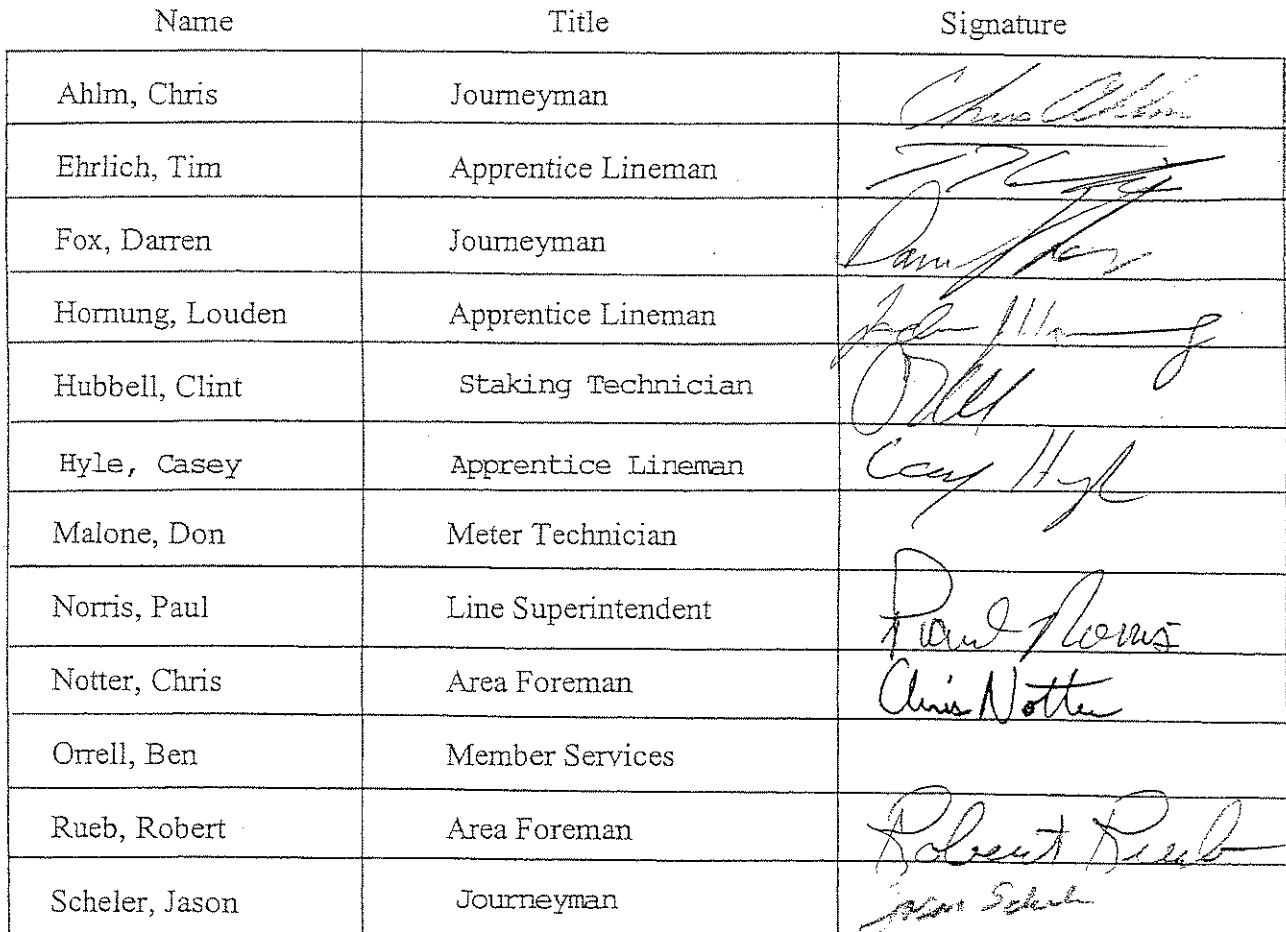 Name Title Signature
Ahlm, Chris Journeyman Chris Ahlm
Ehrlich, Tim Apprentice Lineman
Fox, Darren Journeyman
Hornung, Louden Apprentice Lineman
Hubbell, Clint Staking Technician
Hyle, Casey Apprentice Lineman Casey Hyle
Malone, Don Meter Technician
Norris, Paul Line Superintendent Paul Norris
Notter, Chris Area Foreman Chris Notter
Orrell, Ben Member Services
Rueb, Robert Area Foreman Robert Rueb
Scheler, Jason Journeyman Jason Scheler